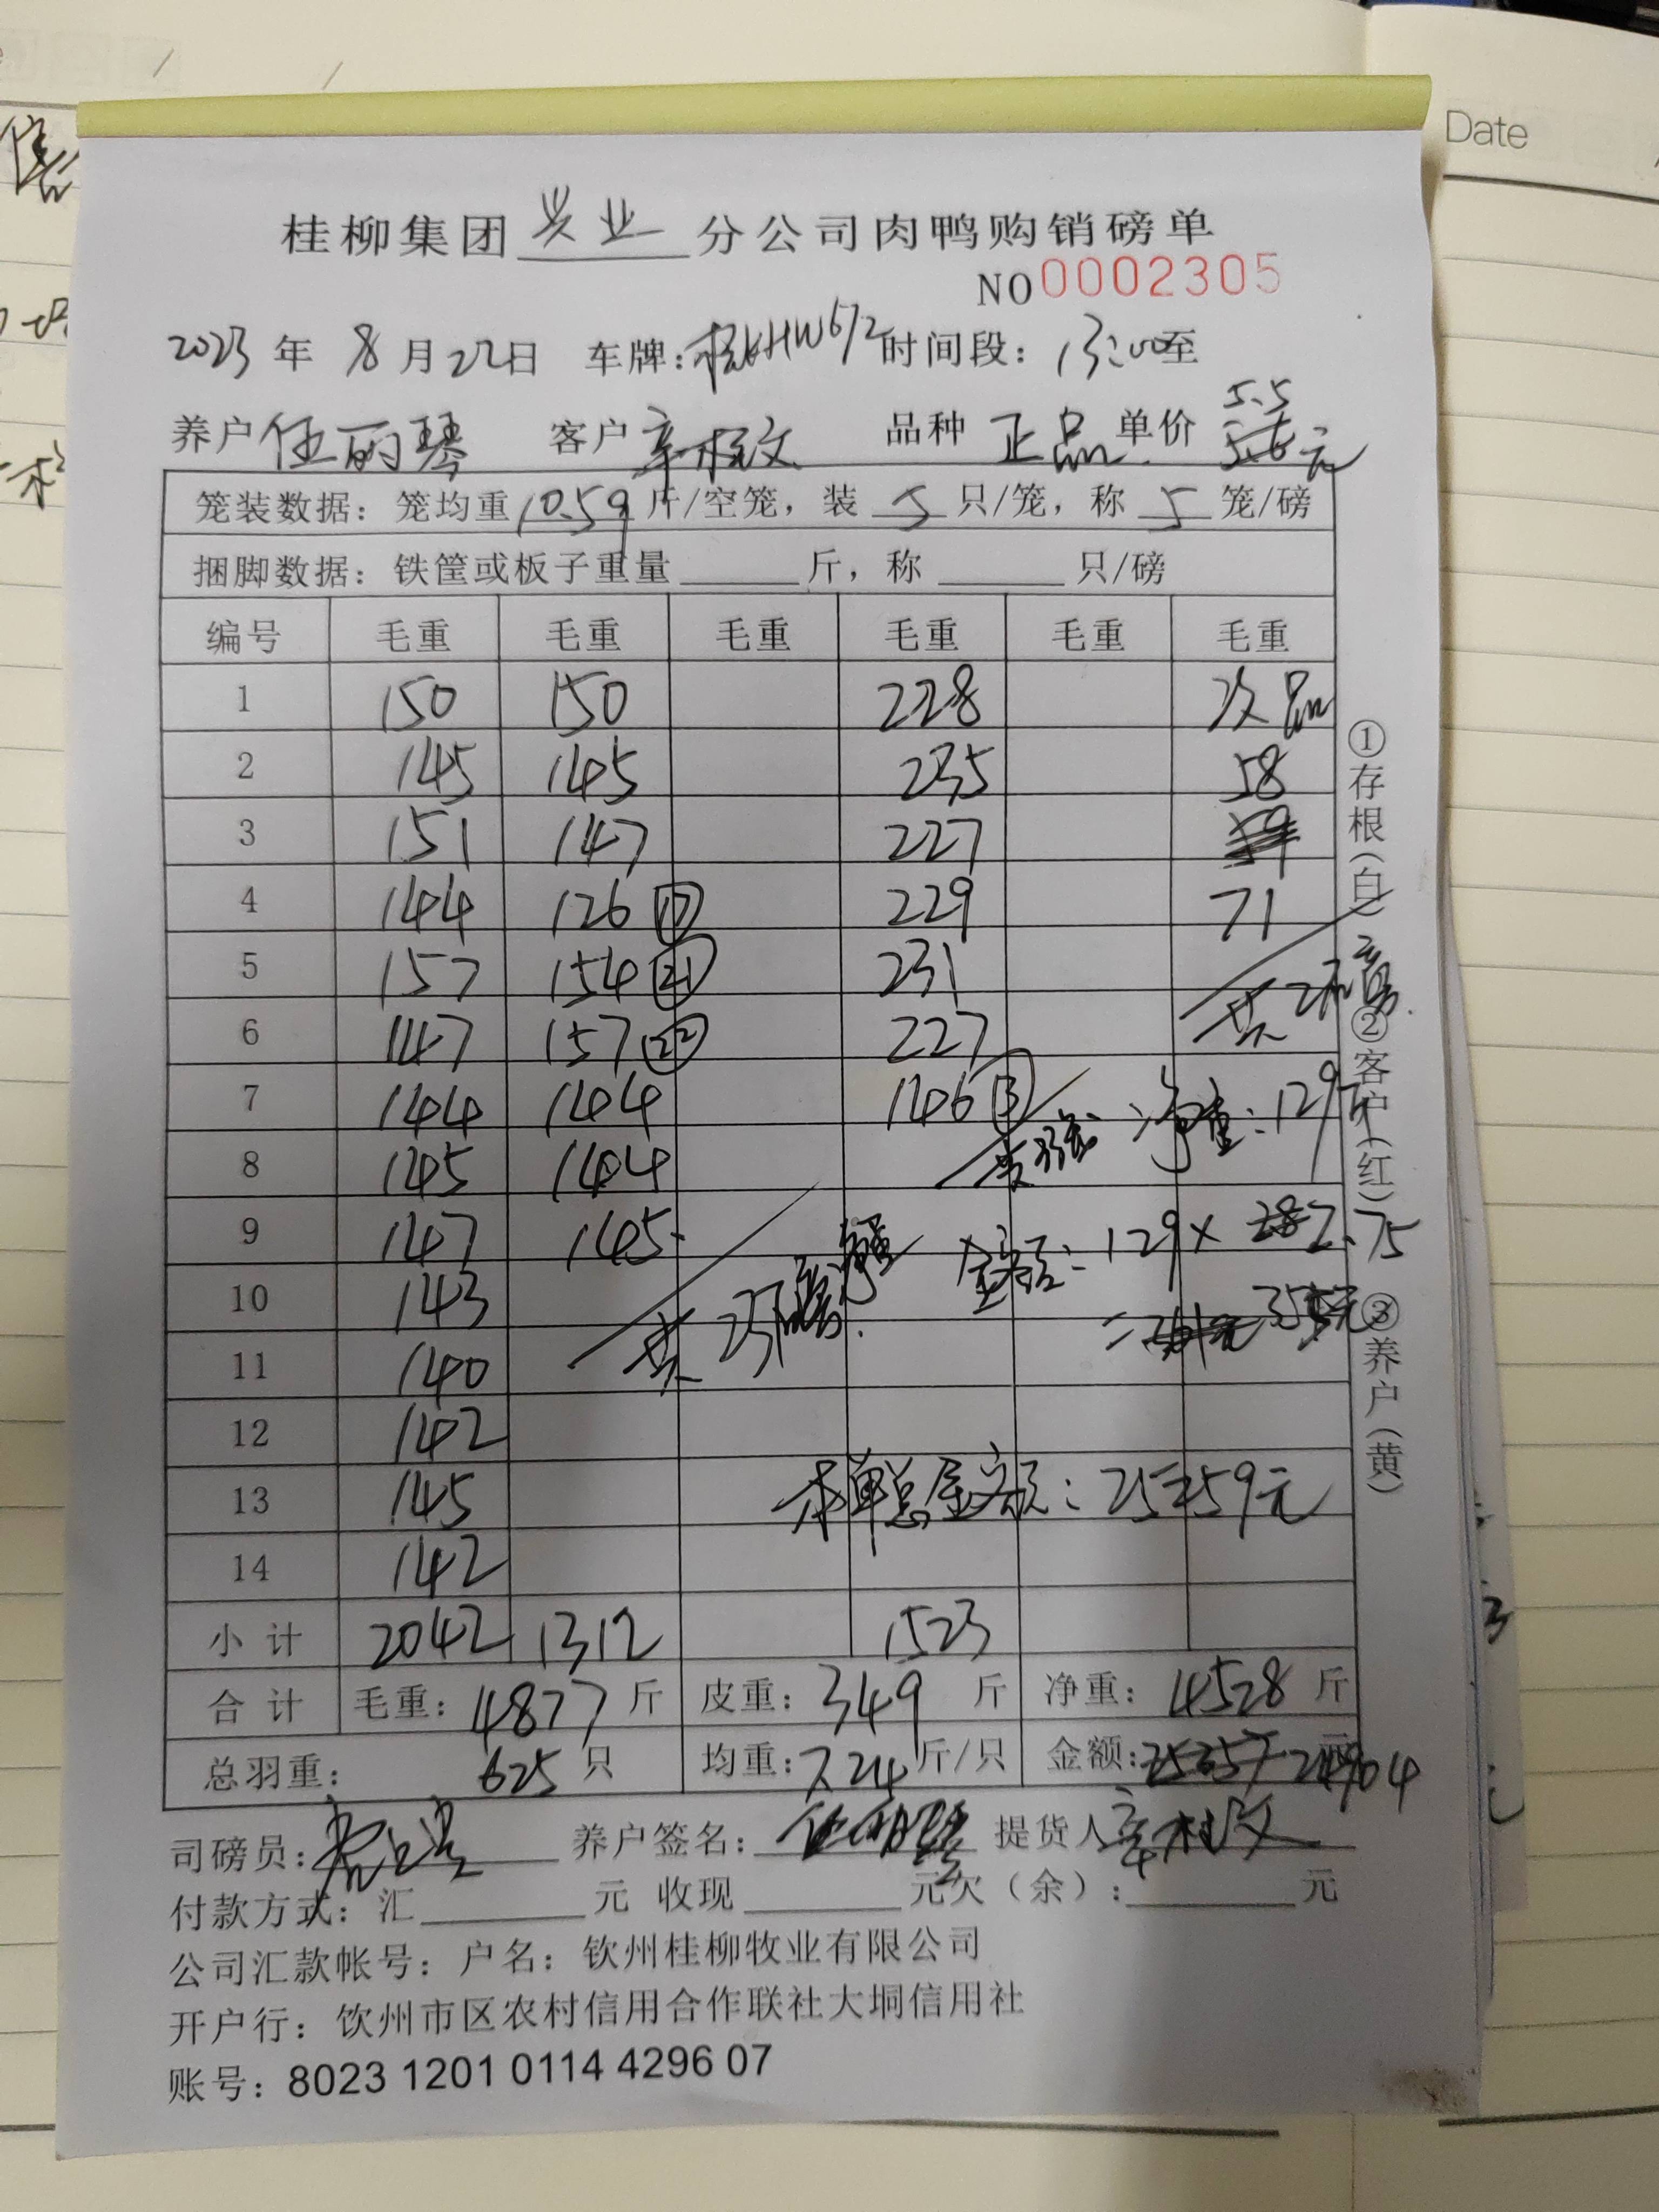 Date
桂柳集团 兴业 分公司肉鸭购销磅单
NO 0002305
2023 年 8 月 22日 车牌: HW672 时间段: 13:00至
养户 任丽琴 客户 品种 正品 单价 5.5 元
笼装数据: 笼均重 10.59 斤/空笼, 装 5 只/笼, 称 5 笼/磅
捆脚数据: 铁筐或板子重量 斤, 称 只/磅
编号 毛重 毛重 毛重 毛重 毛重 毛重
1 150 150 228 次品
2 145 145 235 58
3 151 147 227
4 144 126 17 229 71
5 157 154 21 231
6 147 157 22 227 共2
7 144 144 146 净重: 129
8 145 144
9 147 145 金额: 129× 2.75
10 143 共 23 = 355元
11 140
12 142
13 145 本单总金额: 25259元
14 142
小 计 2042 1312 1523
合 计 毛重: 4877 斤 皮重: 349 斤 净重: 4528 斤
总羽重: 625 只 均重: 7.24 斤/只 金额: 24904
司磅员: 养户签名: 提货人
付款方式: 汇 元 收现 元欠(余): 元
公司汇款帐号: 户名: 钦州桂柳牧业有限公司
开户行: 钦州市区农村信用合作联社大垌信用社
账号: 8023 1201 0114 4296 07
①存根(白)
②客户(红)
③养户(黄)